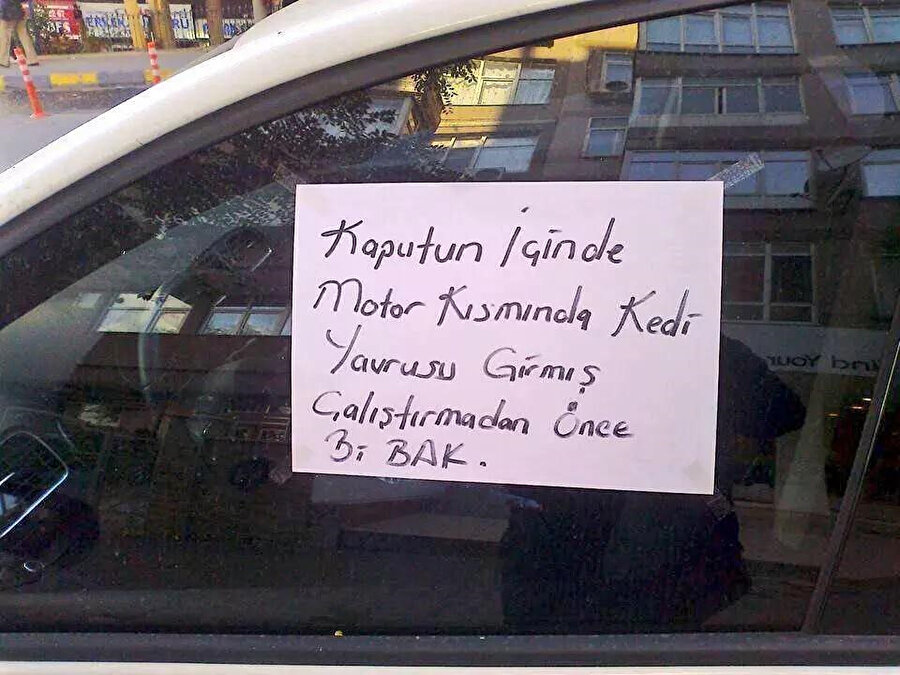 Kaputun İçinde
Motor Kısmında Kedi
Yavrusu Girmiş
Çalıştırmadan Önce
Bi BAK.